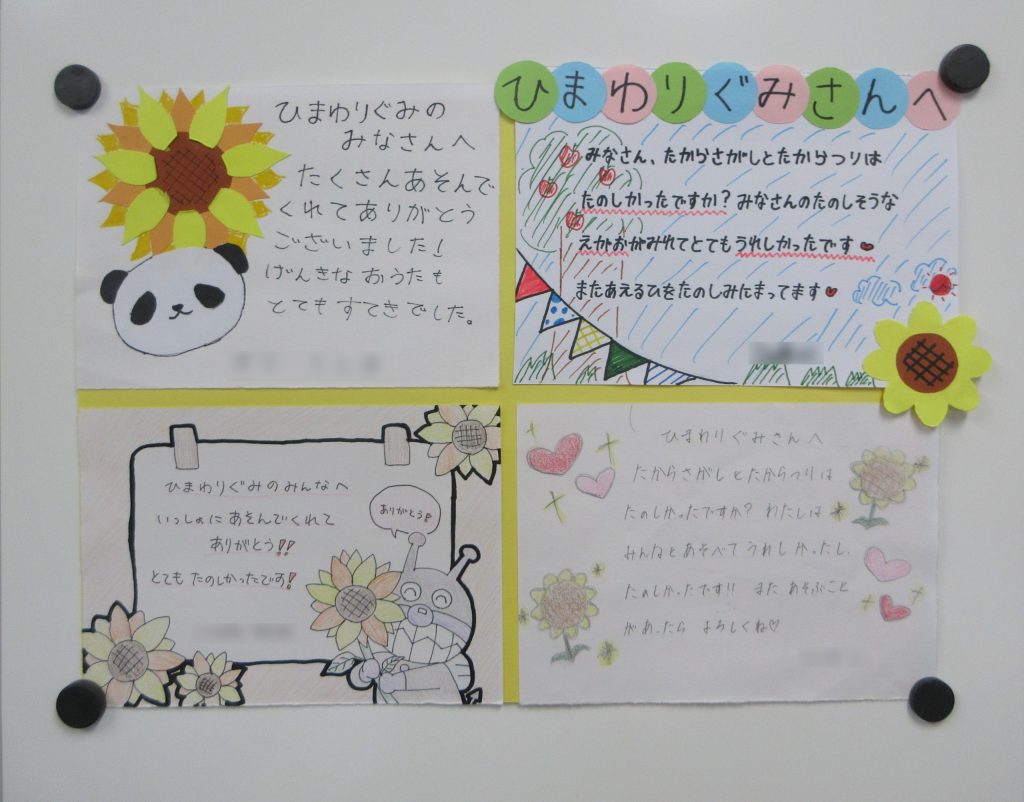 ひまわりぐみの
みなさんへ
たくさんあそんで
くれてありがとう
ございました!
げんきな おうたも
とても すてきでした。
ひまわりぐみさんへ
みなさん、たからさがしとたからつりは
たのしかったですか?みなさんのたのしそうな
えがおがみれてとてもうれしかったです
またあえるひをたのしみにまってます
ひまわりぐみのみんなへ
いっしょに あそんでくれて
ありがとう!!
とても たのしかったです!
ありがとう!
ひまわりぐみさんへ
たからさがしとたからつりは
たのしかったですか? わたしは
みんなとあそべて うれしかったし、
たのしかったです!! また あそぶこと
が あったら よろしくね♡